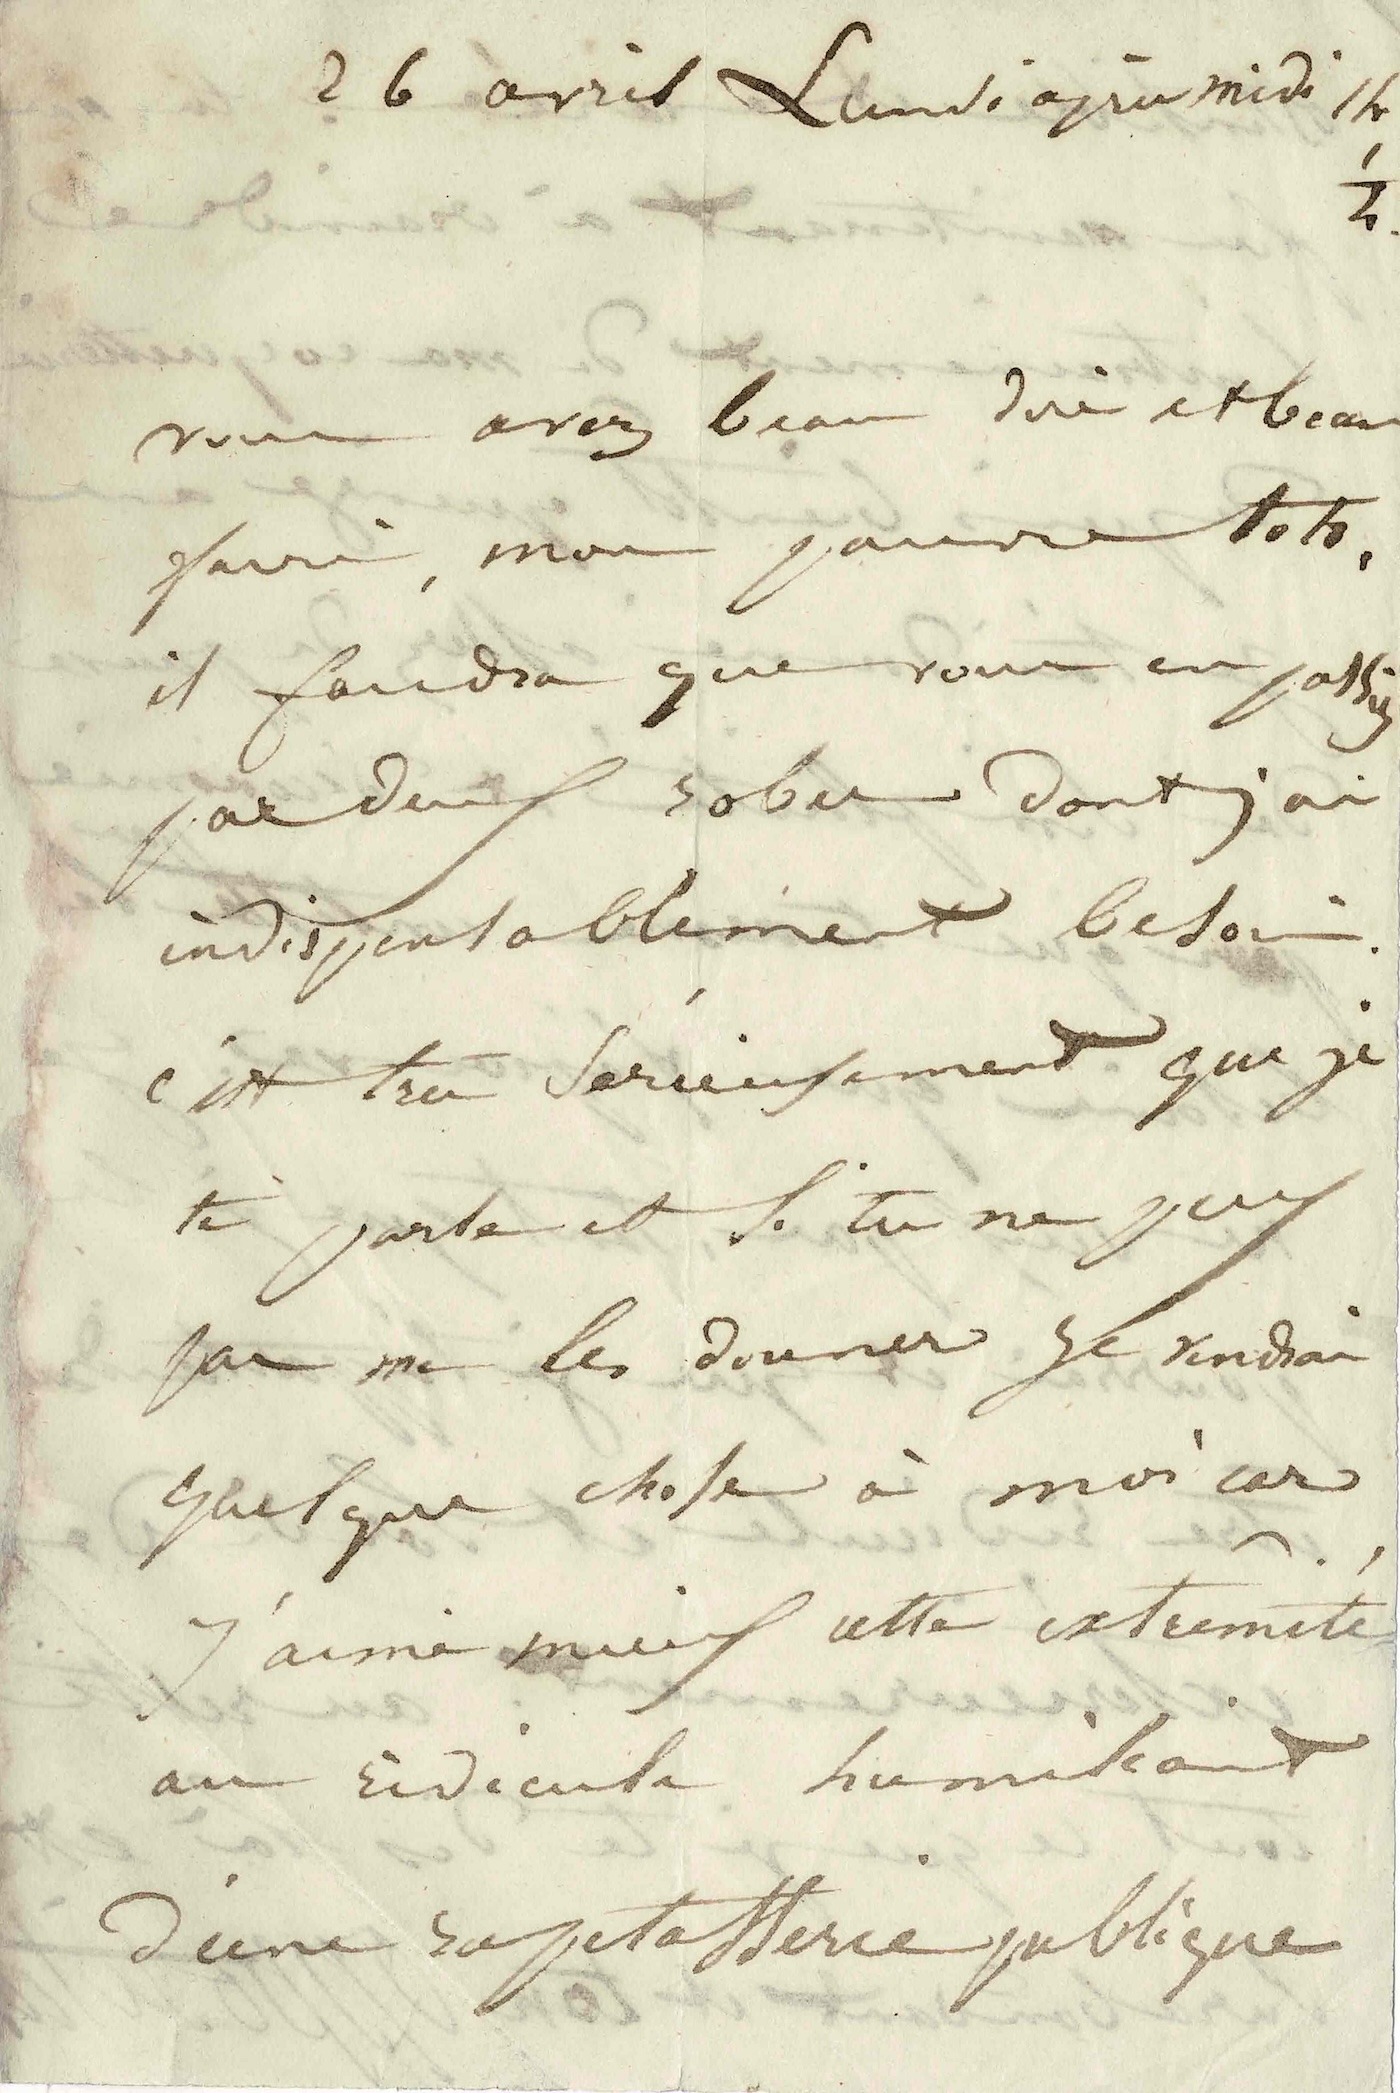 26 avril Lundi après midi 1h
1/2.
vous avez beau dire et beau
faire, mon pauvre Toto,
il faudra que vous en passiez
par deux robes dont j'ai
indispensablement besoin.
c'est très sérieusement que je
te parle et si tu ne peux
pas me les donner je vendrai
quelque chose à moi car
j'aime mieux cette extrêmité
au ridicule humiliant
d'une rapetasserie publique